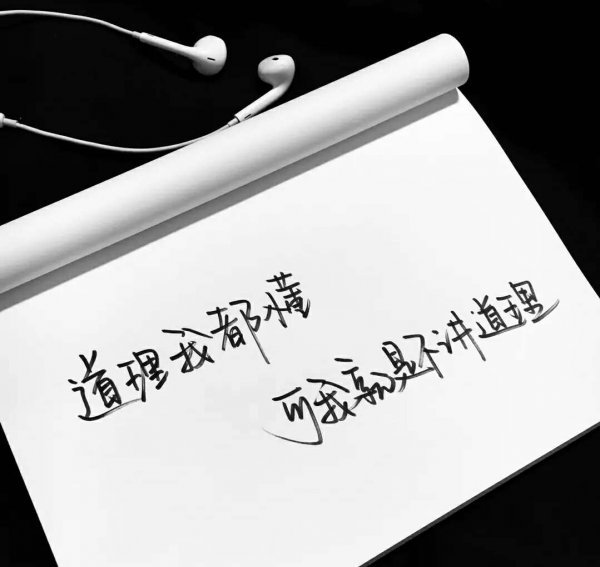 道理我都懂
可我就是不讲道理